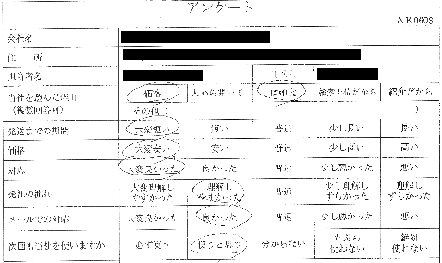 アンケート
会社名
住 所
担当者名
当社を選んだ理由 価格
(複数回答可) その他(
発送までの期間 大変短い 短い 普通 少し長い 長い
価格 大変安い 安い 普通 少し高い 高い
対応 大変良かった 良かった 普通 少し悪かった 悪い
発注の流れ 大変理解しやすかった 理解しやすかった 普通 少し理解しづらかった 理解しづらかった
メールでの対応 大変良かった 良かった 普通 少し悪かった 悪い
次回も当社を使いますか 必ず使う 使うと思う 分からない たぶん使わない 絶対使わない